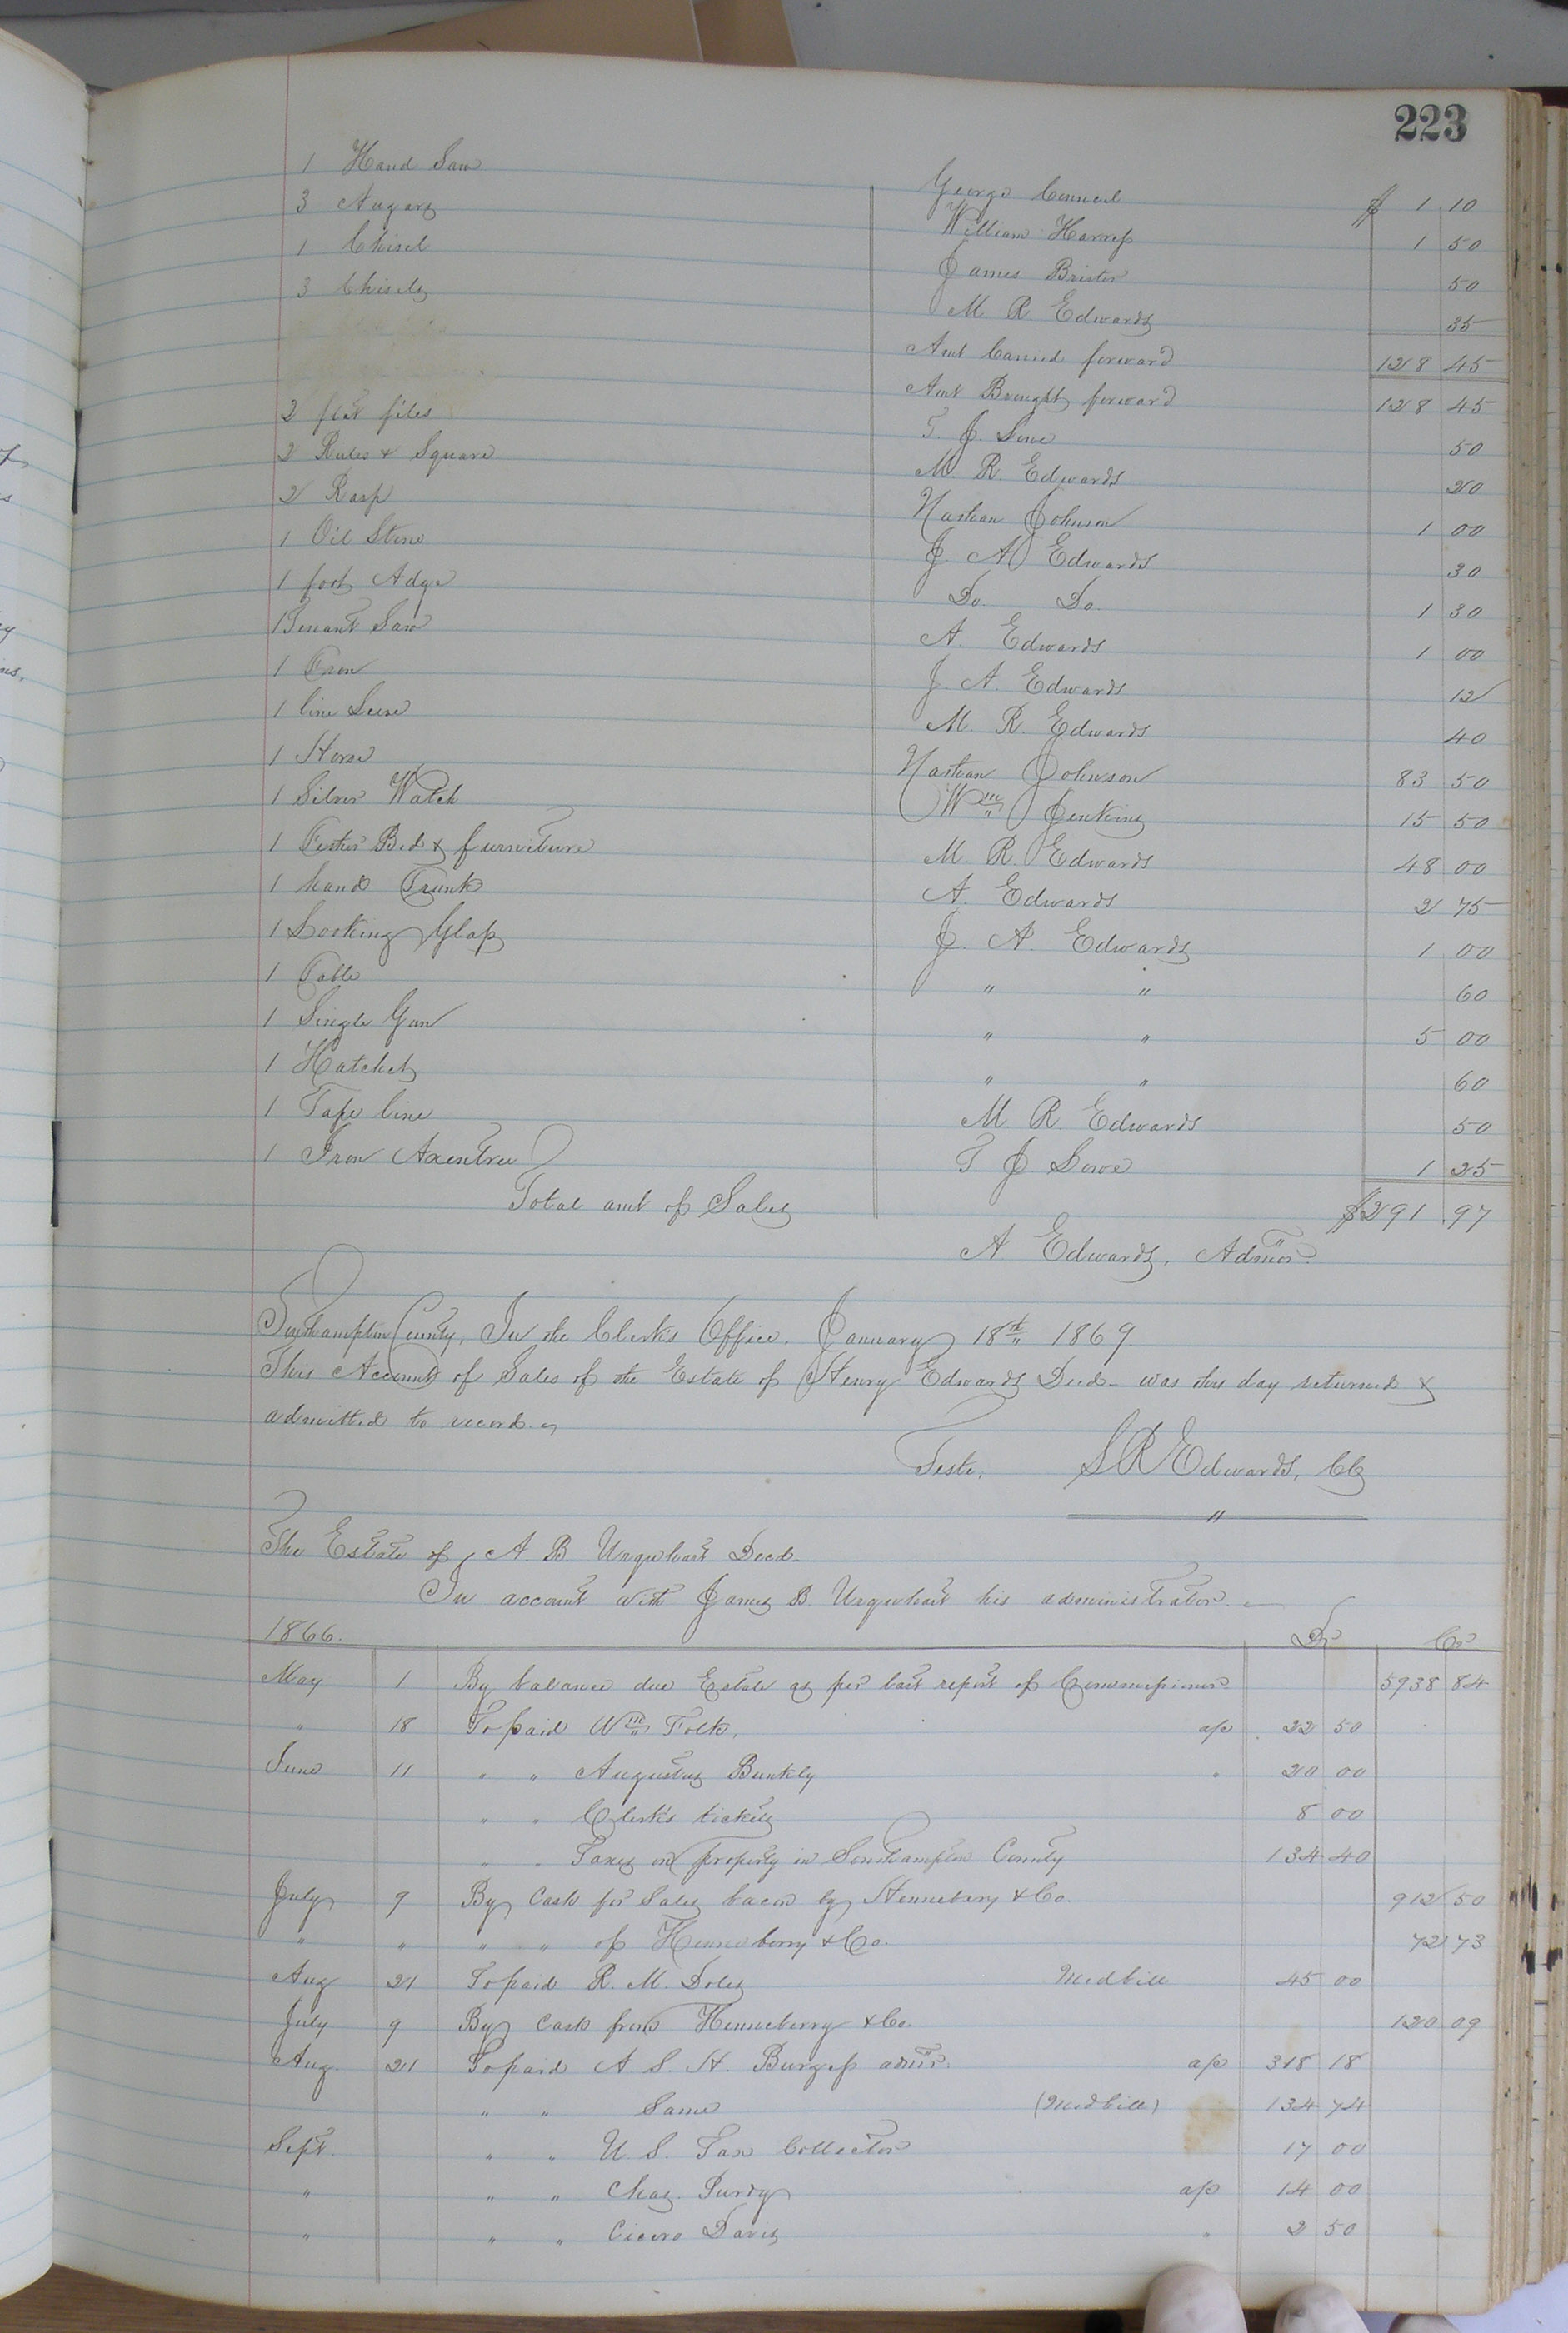 223
1 Hand Saw George Council $ 1 10
3 Augers William Harress 1 50
1 Chisel James Brister 50
3 Chisels M. R. Edwards 35
Amt Carried forward 128 45
Amt Brought forward 128 45
2 flat files T. J. 50
2 Rules & Square M. R. Edwards 20
2 Rasp Nathan Johnson 1 00
1 Oil Stone J A Edwards 30
1 foot Adze Do. Do. 1 30
1 Tenant Saw A. Edwards 1 00
1 J. A. Edwards 12
1 line M. R. Edwards 40
1 Horse Nathan Johnson 83 50
1 Silver Watch Wm Jenkins 15 50
1 Bed & furniture M. R. Edwards 48 00
1 hand Trunk A. Edwards 2 75
1 Looking Glass J. A. Edwards 1 00
1 Table " " 60
1 Single Gun " " 5 00
1 Hatchet " " 60
1 Tape line M. R. Edwards 50
1 Iron Axentree T J 1 25
Total amt of Sales $291 97
A Edwards, Admor.
Southampton County, In the Clerk's Office, January 18th 1869.
This Account of Sales of the Estate of Henry Edwards Decd- was this day returned &
admitted to record.
Teste, S R Edwards, CC
"
The Estate of A. B. Urquhart Decd-
In account with James B. Urquhart his administrator.
1866. Dr Cr
May 1 By balance due Estate as per last report of Commissioner 5938 84
" 18 To paid Wm Folk, a/c 22 50
June 11 " " Augustus Bunkly " 20 00
" " Clerk's tickets 8 00
" " Taxes on property in Southampton County 134 40
July 9 By Cash for Sales bacon by Henneberry & Co. 912 50
" " " " of Henneberry & Co. 72 73
Aug 21 To paid R. M. Doles Medbill 45 00
July 9 By Cash from Henneberry & Co. 120 09
Aug. 21 To paid A. S. H. Burgess admr. a/c 318 18
" " Same (Medbill) 134 74
Sept. " " U. S. Tax Collector 17 00
" " " Chas. Purdy a/c 14 00
" " " Cicero Davis " 2 50